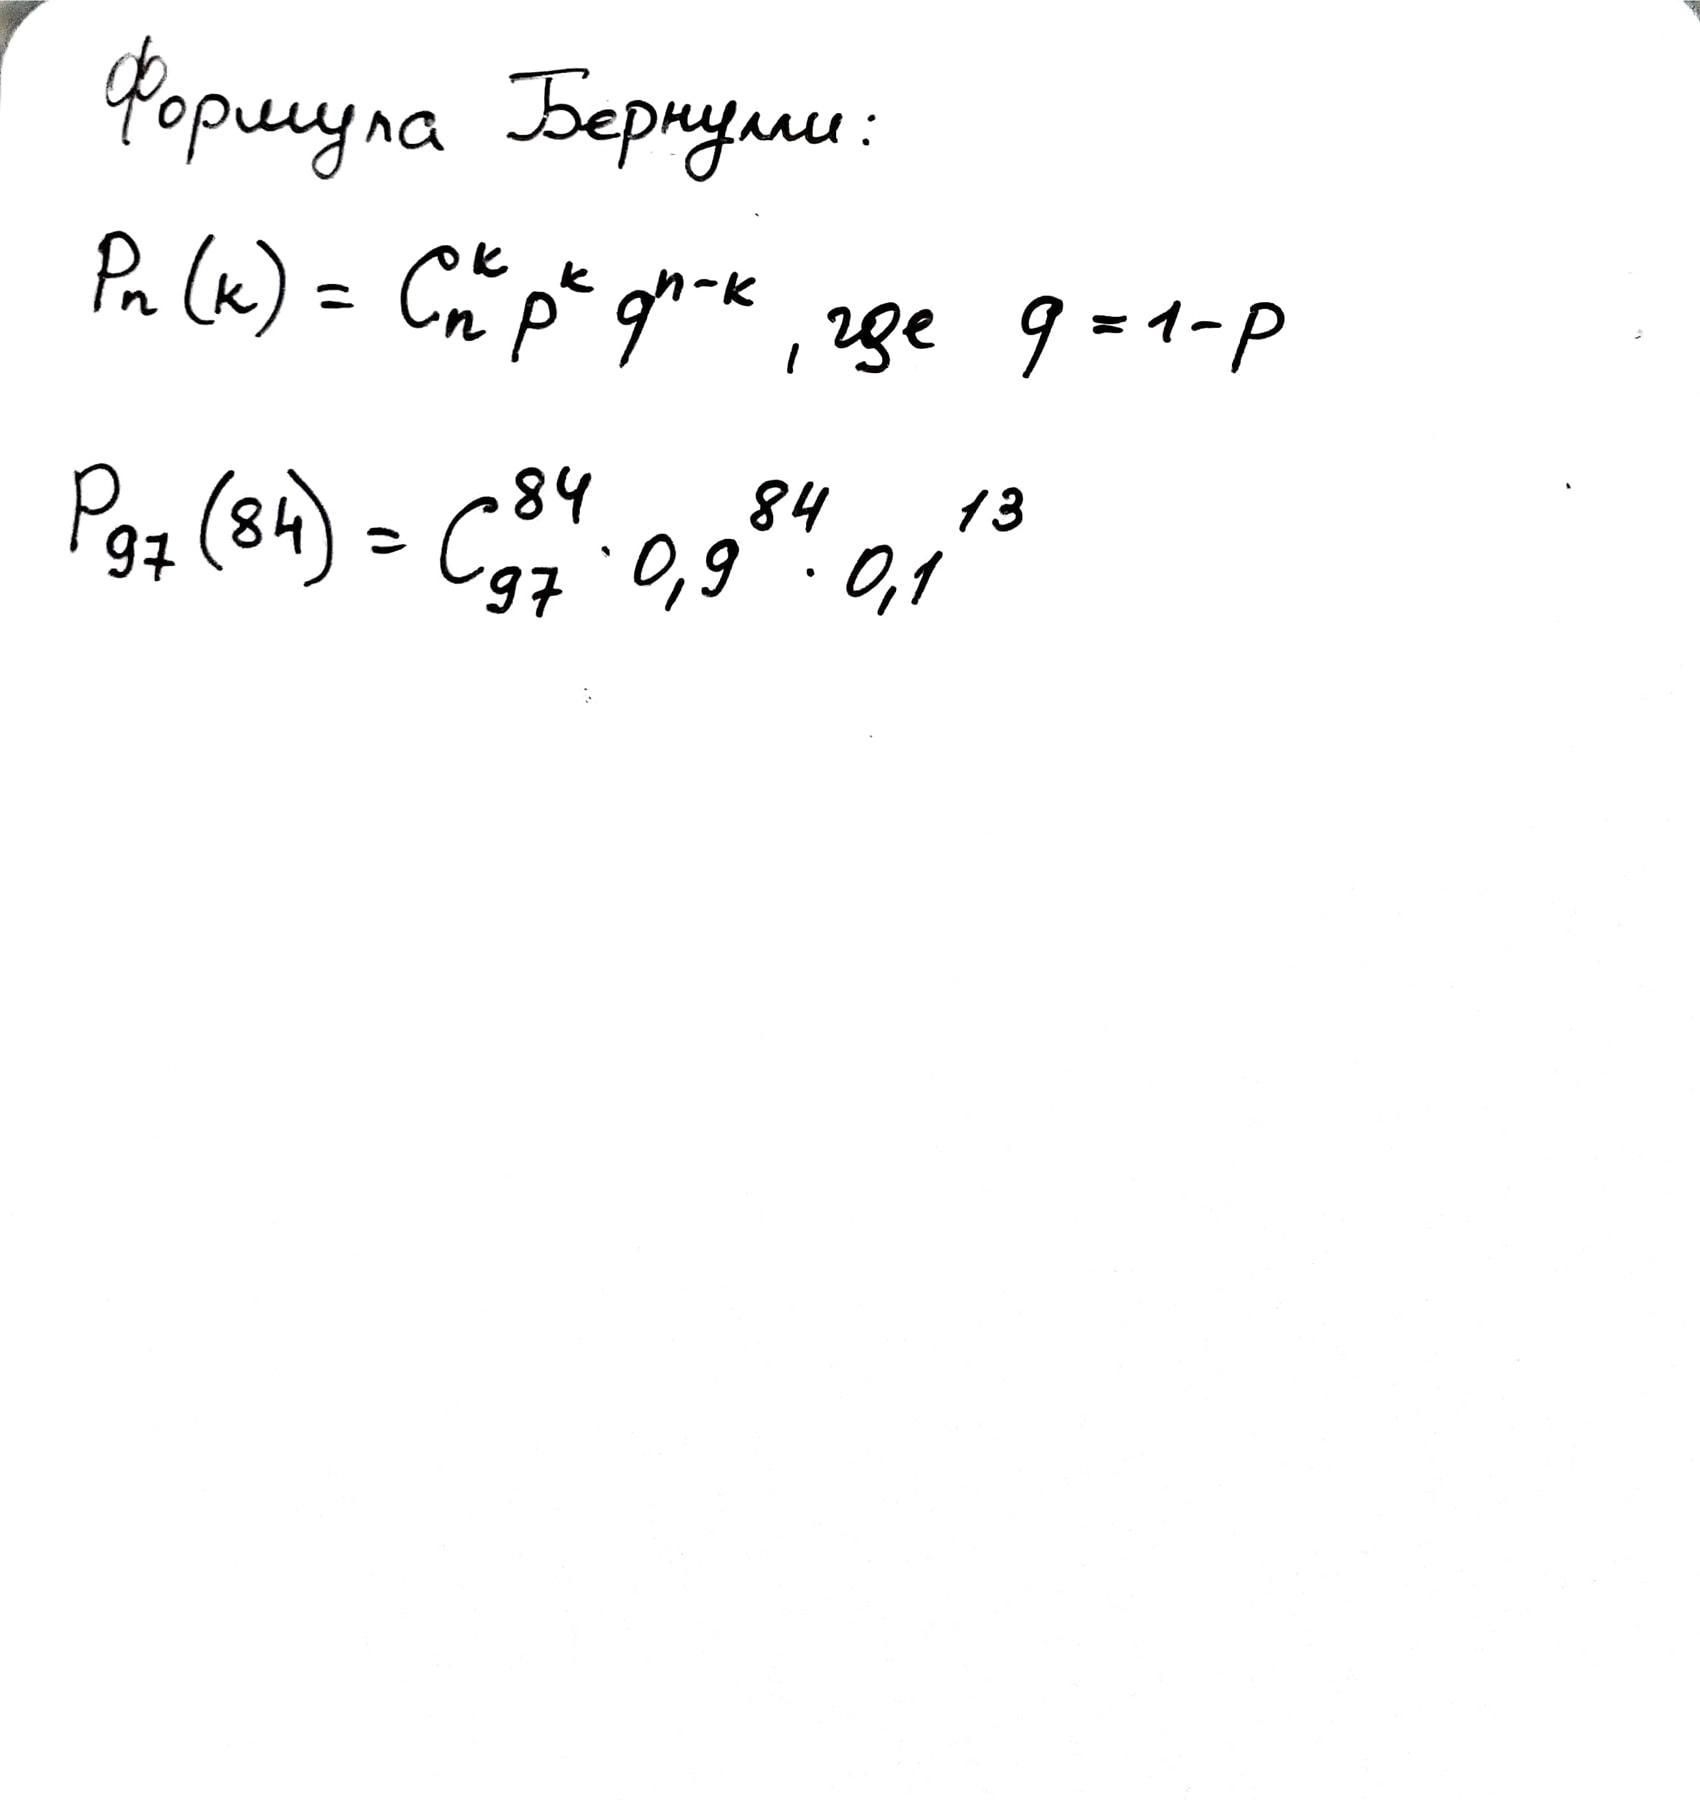 Формула Бернулли:
Pn(k) = C_n^k p^k q^{n-k}, где q = 1 - p
P_{97}(84) = C_{97}^{84} · 0,9^{84} · 0,1^{13}